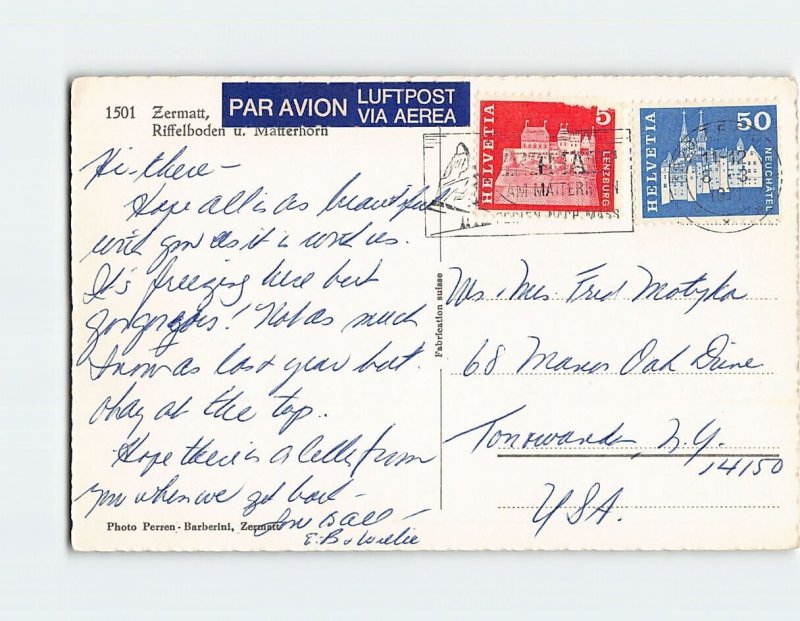 1501 Zermatt,
Riffelboden u. Matterhorn
PAR AVION LUFTPOST
VIA AEREA
HELVETIA 5 LENZBURG
HELVETIA 50 NEUCHÂTEL
AM MATTERHORN
FERIEN NACH MASS
11-12
Hi-there-
Hope all is as beautiful
with you as it is with us.
It's freezing here but
gorgeous! Not as much
snow as last year but
okay at the top..
Hope there is a letter from
you when we get back-
Love to all -
E.B & Willie
Photo Perren-Barberini, Zermatt
Fabrication suisse
Mrs. Fred Motyka
68 Manor Oak Drive
Tonowanda, N.Y.
14150
USA.